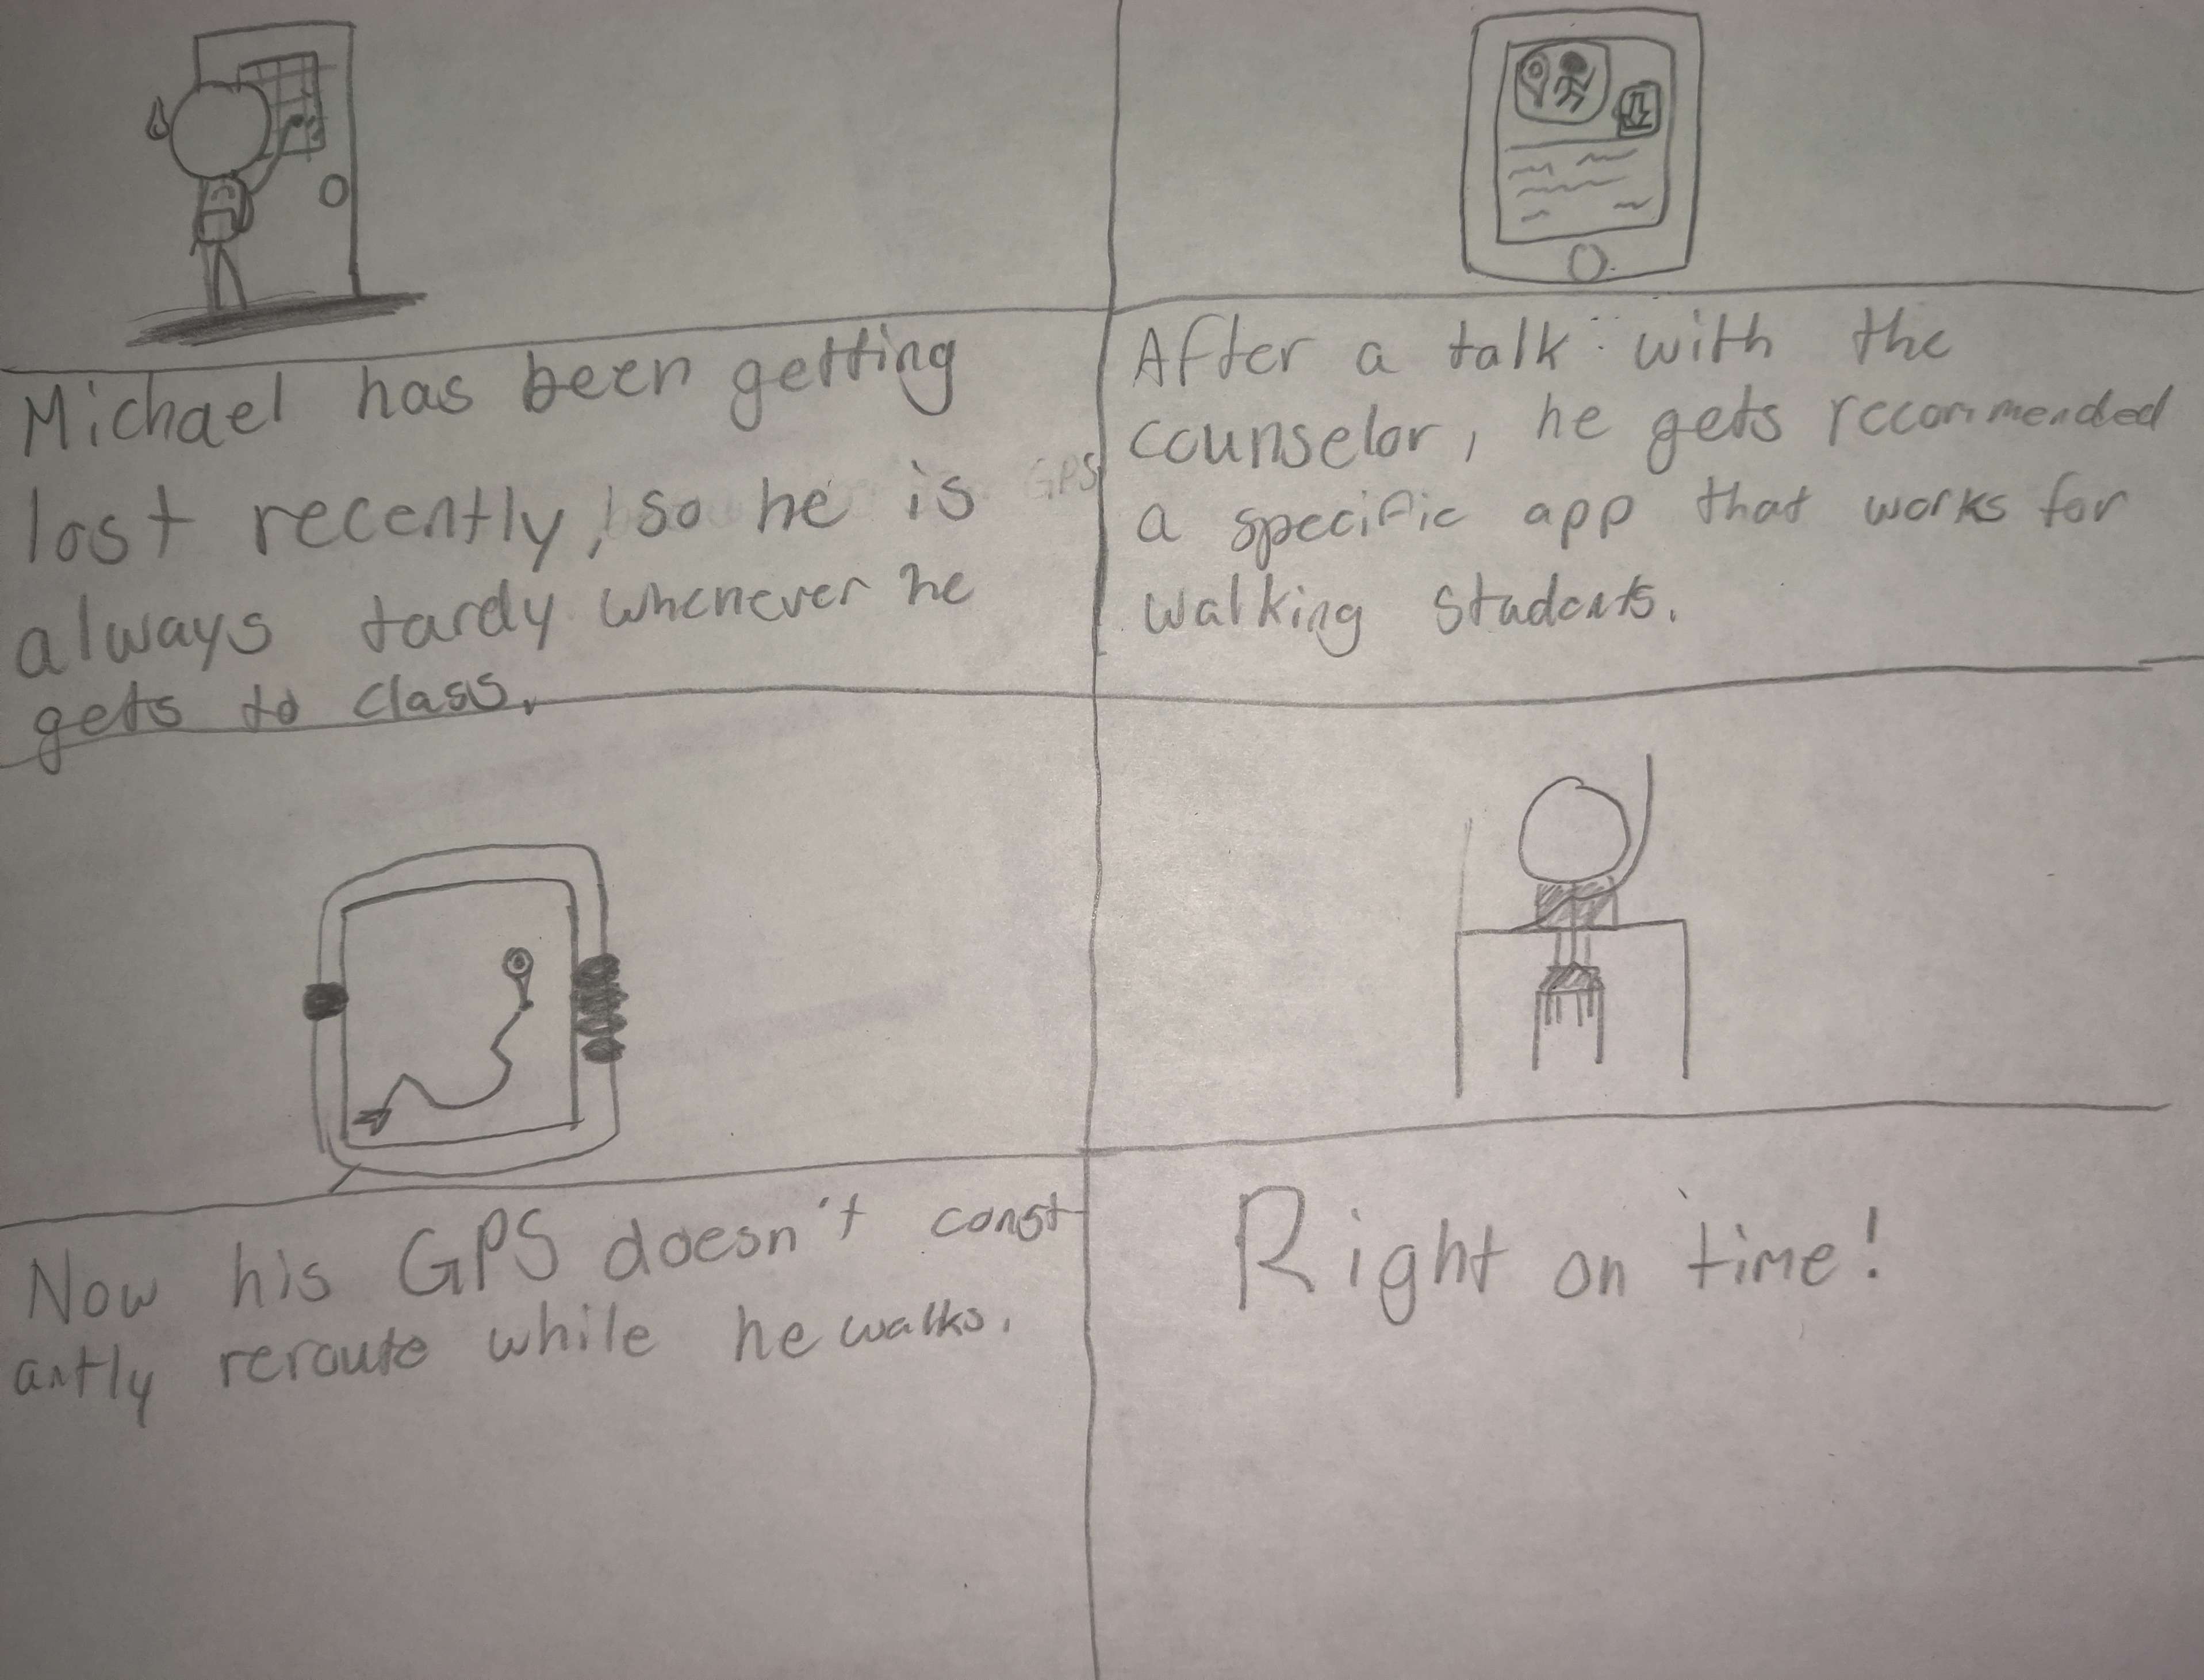 Michael has been getting
lost recently, so he is
always tardy whenever he
gets to class.
GPS
After a talk with the
counselor, he gets recommended
a specific app that works for
walking students.
Now his GPS doesn't const
antly reroute while he walks.
Right on time!